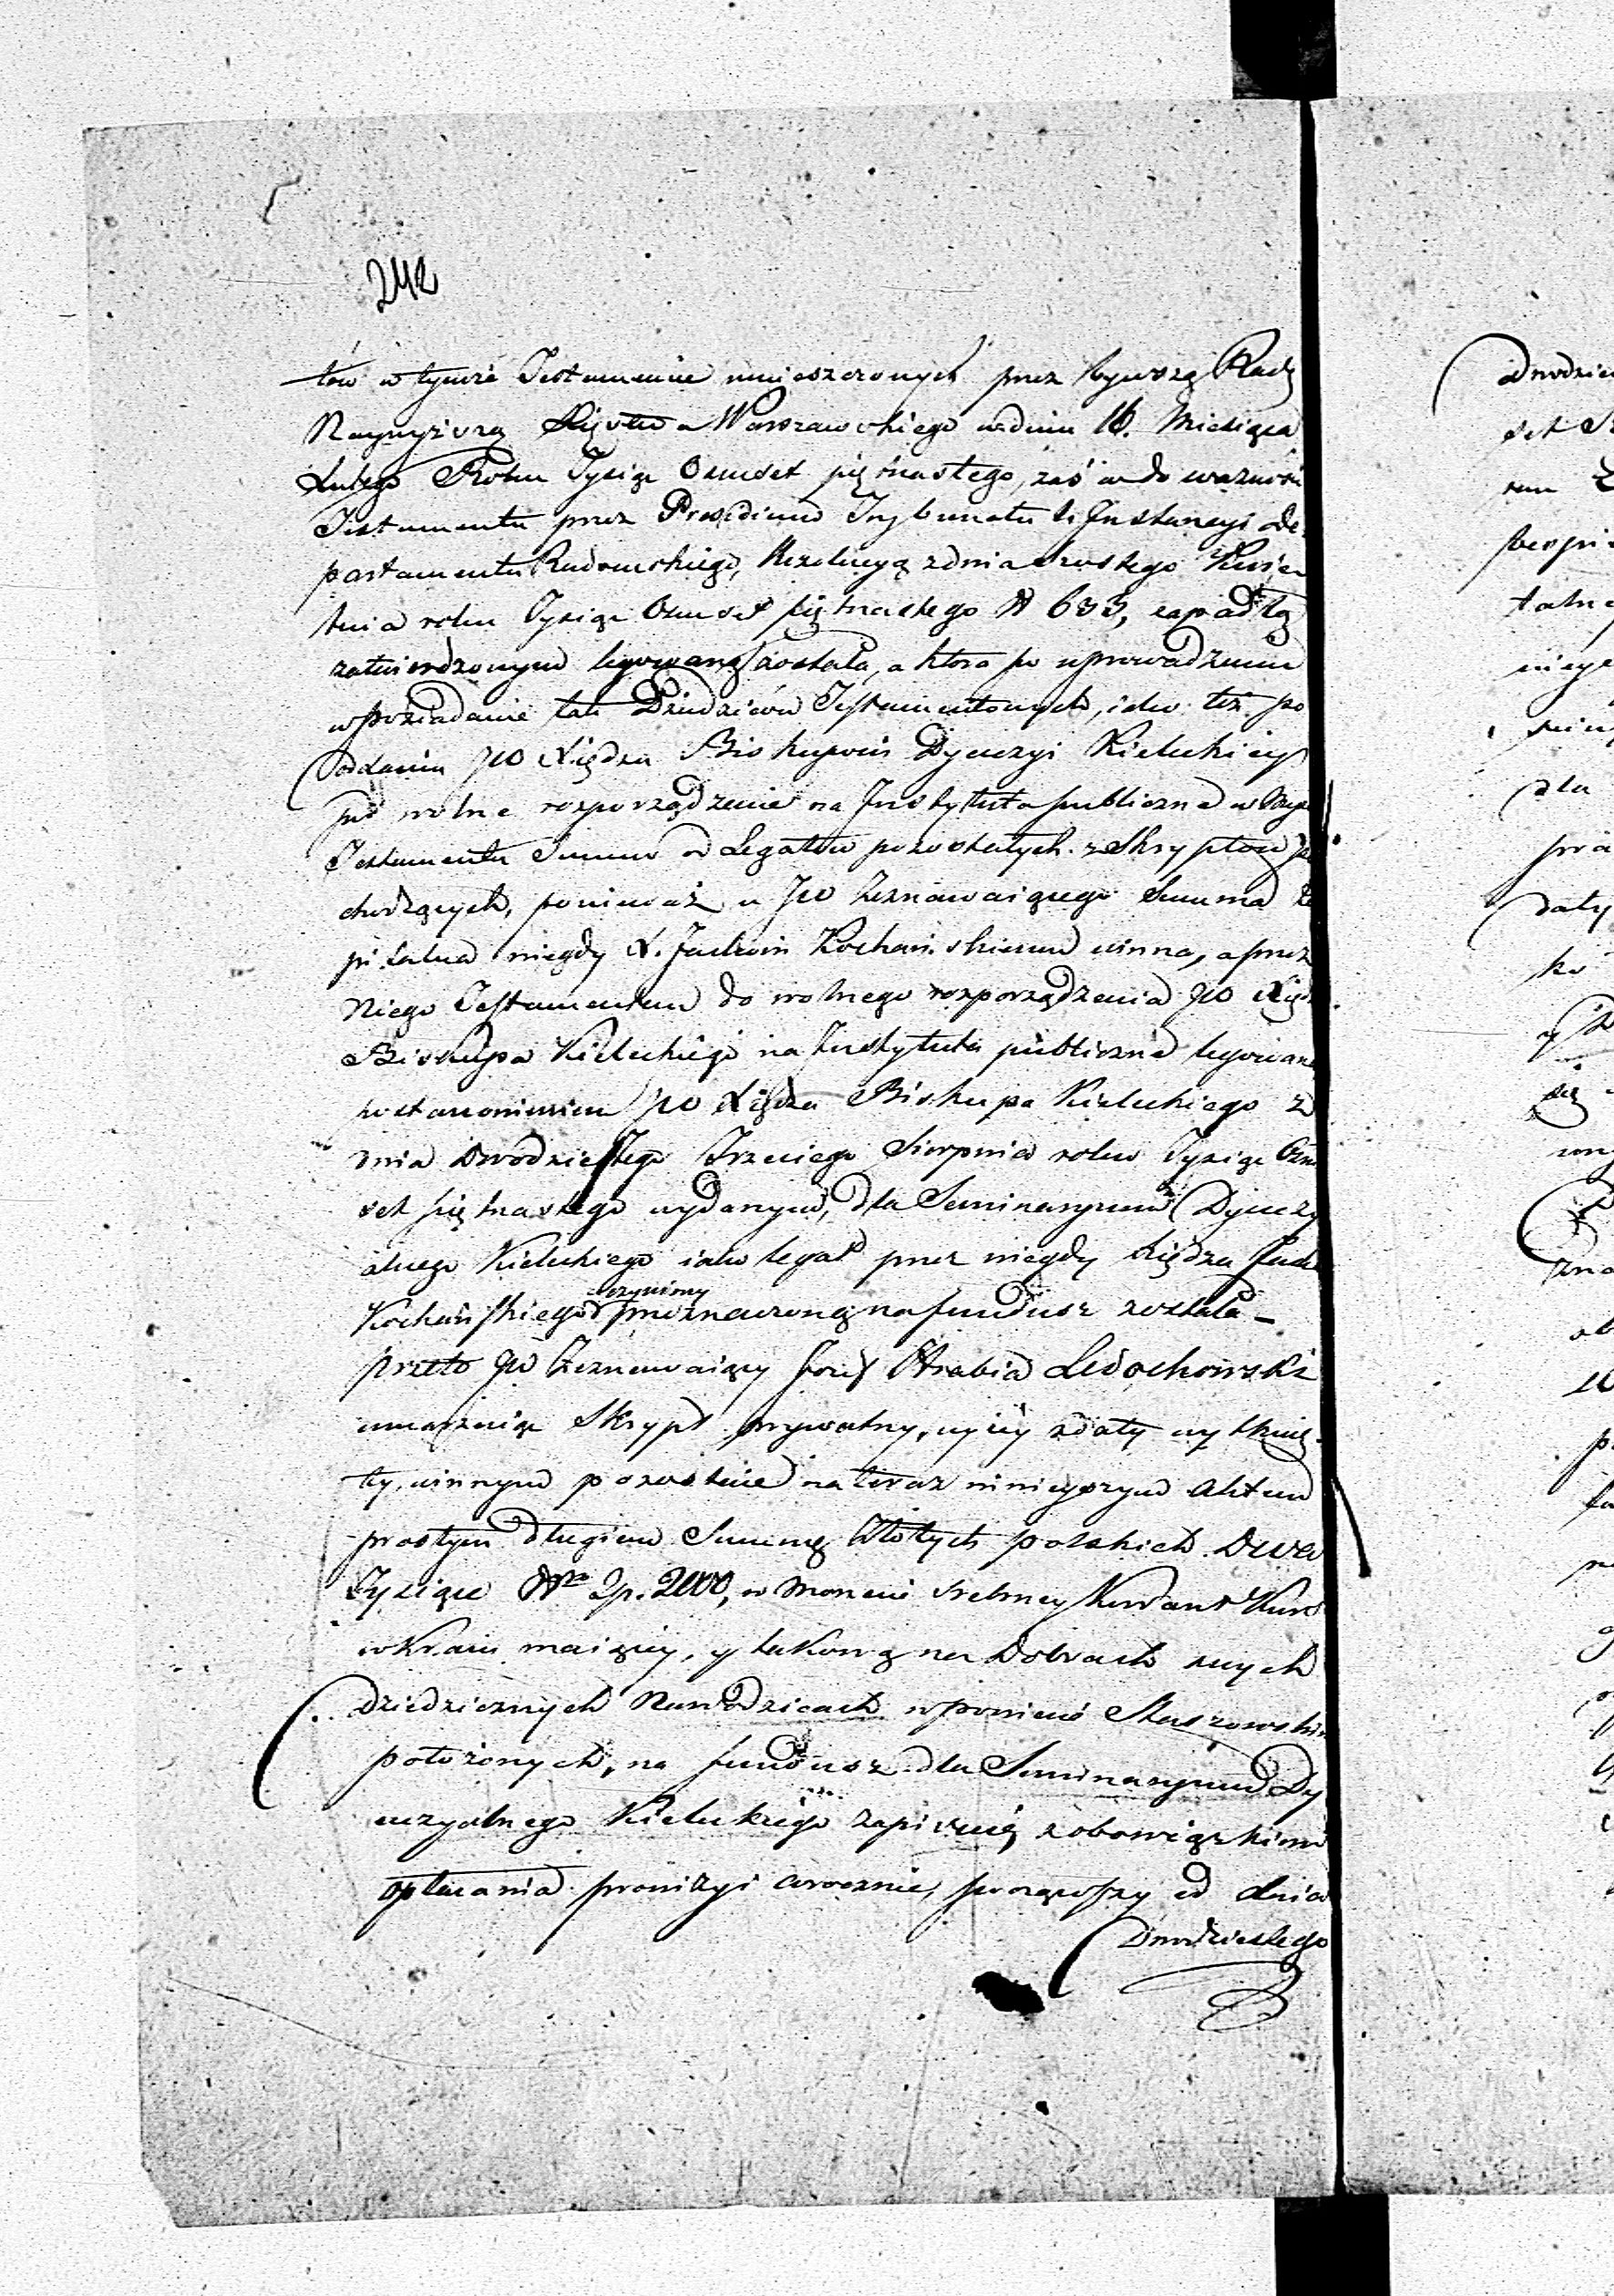 242
tów w tymże Testamencie umieszczonych przez bywszą Radę
Naywyższą Xięstwa Warszawskiego w dniu 16. Miesiąca
Lutego Roku Tysiąc Osmset piętnastego, zaś co do ważności
Testamentu przez Prezidium Trybunatu I. Instancyi De,
partamentu Radomskiego, Rezolucyą z dnia szustego Kwie
tnia roku Tysiąc Osmset piętnastego N 633, zapadłą
zatwierdzonym legowaną została, a ktora po uprowadzeniu
w posiadanie tak Dziedziców Testamentowych, iako też po
oddaniu JW Xiędzu Biskupowi Dyecezyi Kieleckiey
pod wolne rozporządzenie na Instytuta publiczne w
Testamentu Summ od Legatów pozostałych z Skryptów po
chodzących, ponieważ u JW Zeznawaiącego Summa Ka
pitalna niegdy X. Jackowi Kochańskiemu winna, a przez
Niego Testamentem do wolnego rozporządzenia JW Xiędza
Biskupa Kieleckiego na Instytuta publiczne legowana
postanowieniem JW Xiędza Biskupa Kieleckiego z
dnia Dwodziestego Trzeciego Sierpnia roku Tysiąc Osm
set piętnastego wydanym, dla Seminaryum Dyecezy
alnego Kieleckiego iako legat przez niegdy Xiędza Jacka
Kochańskiego uczyniony przeznaczoną na fundusz została –
przeto JW Zeznawaiący Jozef Hrabia Ledochowski
umarzaiąc Skrypt prywatny, wyżey z daty wytknię
ty, winnym pozostaie na teraz ninieyszym Aktem
prostym długiem Summę Złotych polskich Dwa
Tysiące No Zp. 2000, w Monecie srebrney Kurant Kurs
w Kraiu maiącey, y takową na Dobrach swych
Dziedzicznych Nawodzicach w powiecie Staszowskim
położonych, na fundusz dla Seminaryum Dy
ecezyalnego Kieleckiego zapisuie, z obowiązkiem
opłacania prowizyi corocznie, począwszy od dnia
Dwodziestego